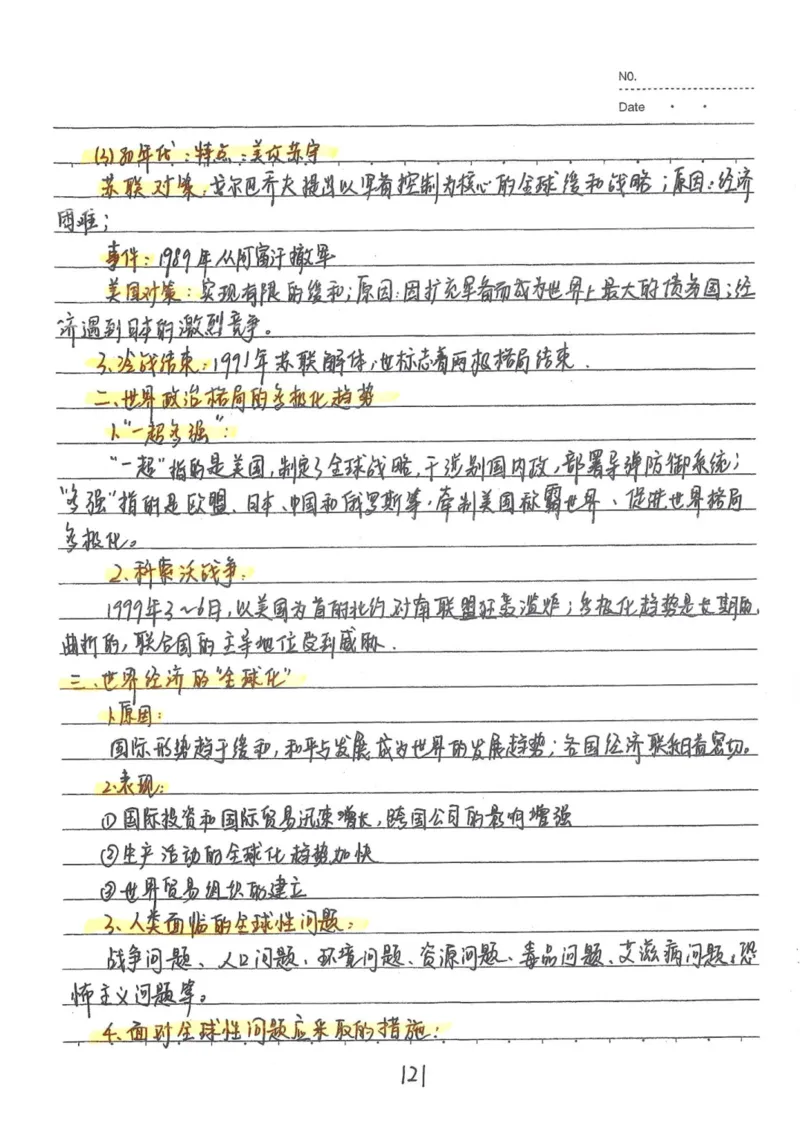 NO.
Date
(3)80年代：特点：美攻苏守
苏联对策：戈尔巴乔夫提出以军备控制为核心的全球缓和战略；原因：经济
困难；
事件：1989年从阿富汗撤军
美国对策：实现有限的缓和；原因：因扩充军备而成为世界上最大的债务国；经
济遇到日本的激烈竞争。
3、冷战结束：1991年苏联解体，也标志着两极格局结束.
二、世界政治格局的多极化趋势
1、“一超多强”：
“一超”指的是美国，制定了全球战略，干涉别国内政，部署导弹防御系统；
“多强”指的是欧盟、日本、中国和俄罗斯等，牵制美国称霸世界、促进世界格局
多极化。
2、科索沃战争：
1999年3~6月，以美国为首的北约对南联盟狂轰滥炸；多极化趋势是长期的，
曲折的，联合国的主导地位受到威胁.
三、世界经济的“全球化”
1、原因：
国际形势趋于缓和，和平与发展成为世界的发展趋势；各国经济联系日益密切。
2、表现：
①国际投资和国际贸易迅速增长，跨国公司的影响增强
②生产活动的全球化趋势加快
③世界贸易组织的建立
3、人类面临的全球性问题：
战争问题、人口问题、环境问题、资源问题、毒品问题、艾滋病问题、恐
怖主义问题等。
4、面对全球性问题应采取的措施：
121